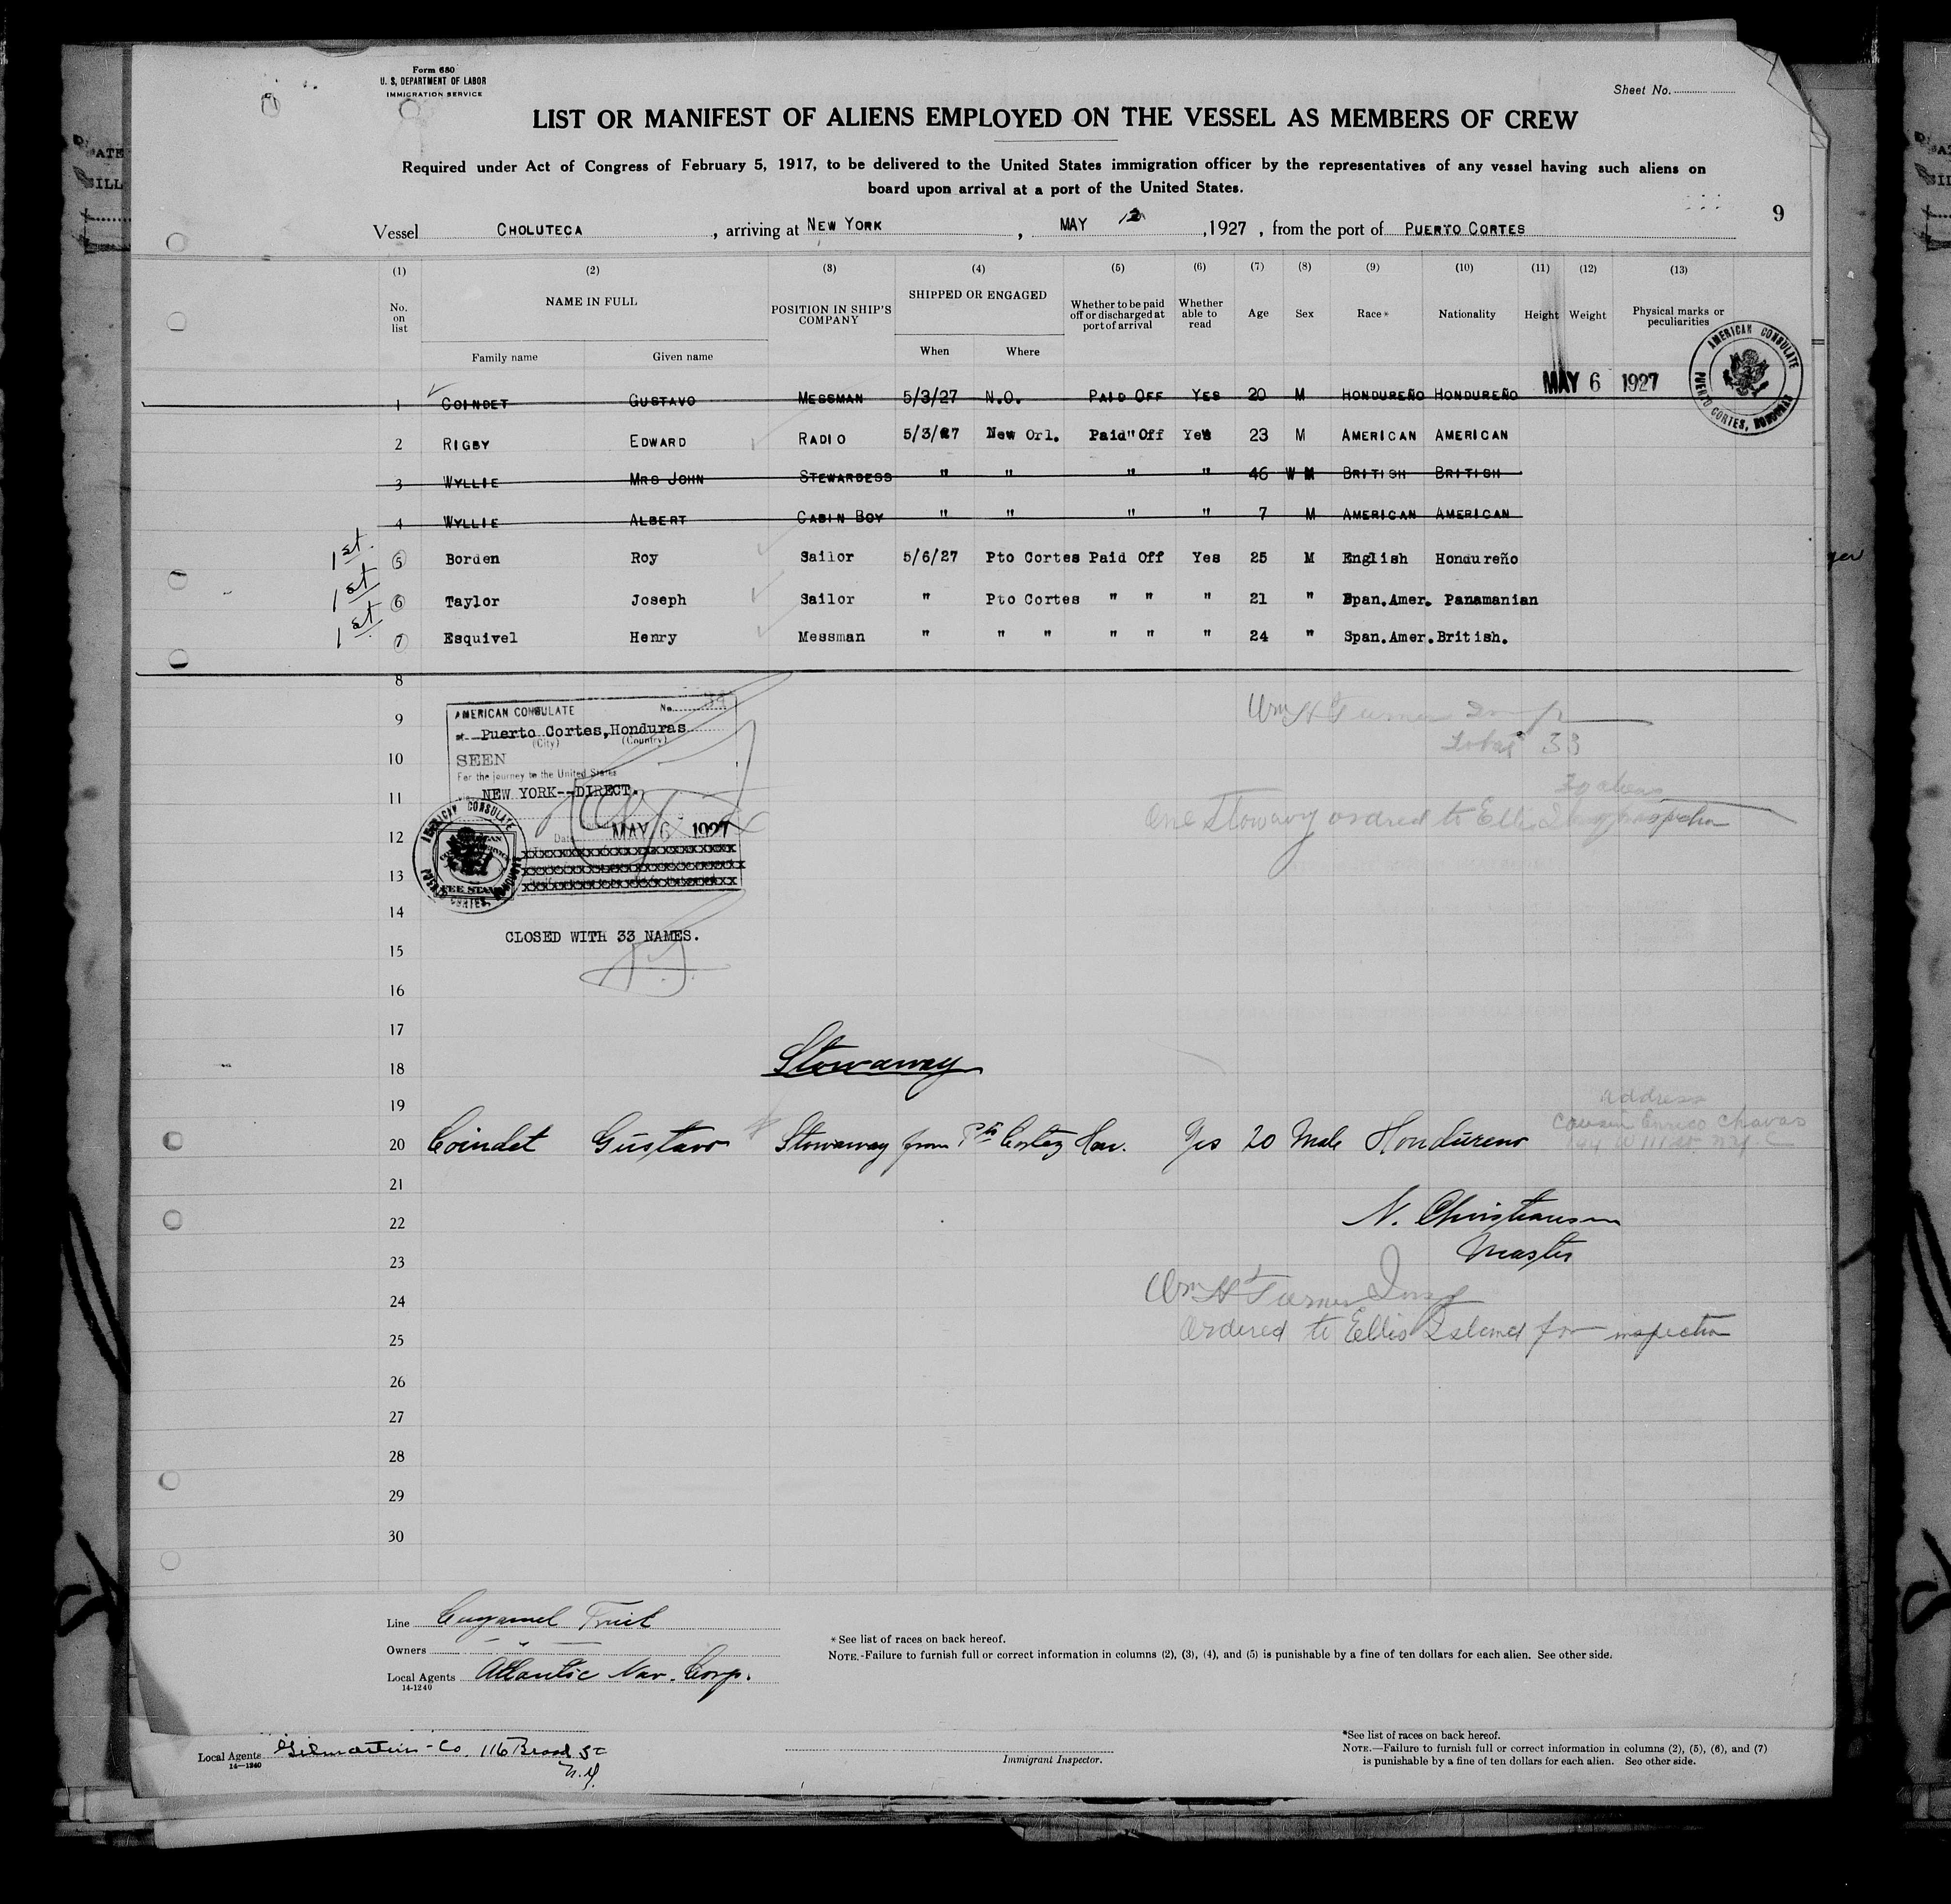 Form 680
U. S. DEPARTMENT OF LABOR
IMMIGRATION SERVICE
Sheet No.
LIST OR MANIFEST OF ALIENS EMPLOYED ON THE VESSEL AS MEMBERS OF CREW
Required under Act of Congress of February 5, 1917, to be delivered to the United States immigration officer by the representatives of any vessel having such aliens on
board upon arrival at a port of the United States.
9
Vessel CHOLUTECA, arriving at NEW YORK, MAY 12, 1927, from the port of PUERTO CORTES
(1) (2) (3) (4) (5) (6) (7) (8) (9) (10) (11) (12) (13)
No. on list NAME IN FULL POSITION IN SHIP'S COMPANY SHIPPED OR ENGAGED Whether to be paid off or discharged at port of arrival Whether able to read Age Sex Race* Nationality Height Weight Physical marks or peculiarities
Family name Given name When Where
AMERICAN CONSULATE PUERTO CORTES, HONDURAS
MAY 6 1927
1 COINDET GUSTAVO MESSMAN 5/3/27 N.O. PAID OFF YES 20 M HONDUREÑO HONDUREÑO
2 RIGBY EDWARD RADIO 5/3/27 New Orl. Paid Off Yes 23 M AMERICAN AMERICAN
3 WYLLIE MRS JOHN STEWARDESS " " " " 46 W BRITISH BRITISH
4 WYLLIE ALBERT CABIN BOY " " " " 7 M AMERICAN AMERICAN
1st. 5 Borden Roy Sailor 5/6/27 Pto Cortes Paid Off Yes 25 M English Hondureño
1st 6 Taylor Joseph Sailor " Pto Cortes " " " 21 " Span.Amer. Panamanian
1st 7 Esquivel Henry Messman " " " " " " 24 " Span.Amer. British.
8
9
10
11
12
13
14
15
16
17
18
19
AMERICAN CONSULATE No.
at Puerto Cortes, Honduras
(City) (Country)
SEEN
For the journey to the United States
NEW YORK--DIRECT.
Date MAY 6 1927
AMERICAN CONSULATE PUERTO CORTES, HONDURAS
FEE STAMP
CLOSED WITH 33 NAMES.
Wm H Turner Insp
Total 33
30 aliens
One Stowaway ordred to Ellis Island for inspection
Stowaway
address
cousin Enrico Chavas
20 Coindet Gustavo Stowaway from Pto Cortez Hon. Yes 20 Male Hondureno
21
22
23
24
25
26
27
28
29
30
N. Christiansen
Master
Wm H Turner Insp
Ordered to Ellis Island for inspection
Line Cuyamel Fruit
Owners " "
Local Agents Atlantic Nav. Corp.
14-1240
*See list of races on back hereof.
NOTE.-Failure to furnish full or correct information in columns (2), (3), (4), and (5) is punishable by a fine of ten dollars for each alien. See other side.
Local Agents Gilmartin - Co. 116 Broad St
N.Y.
14—1240
Immigrant Inspector.
*See list of races on back hereof.
NOTE.—Failure to furnish full or correct information in columns (2), (5), (6), and (7)
is punishable by a fine of ten dollars for each alien. See other side.